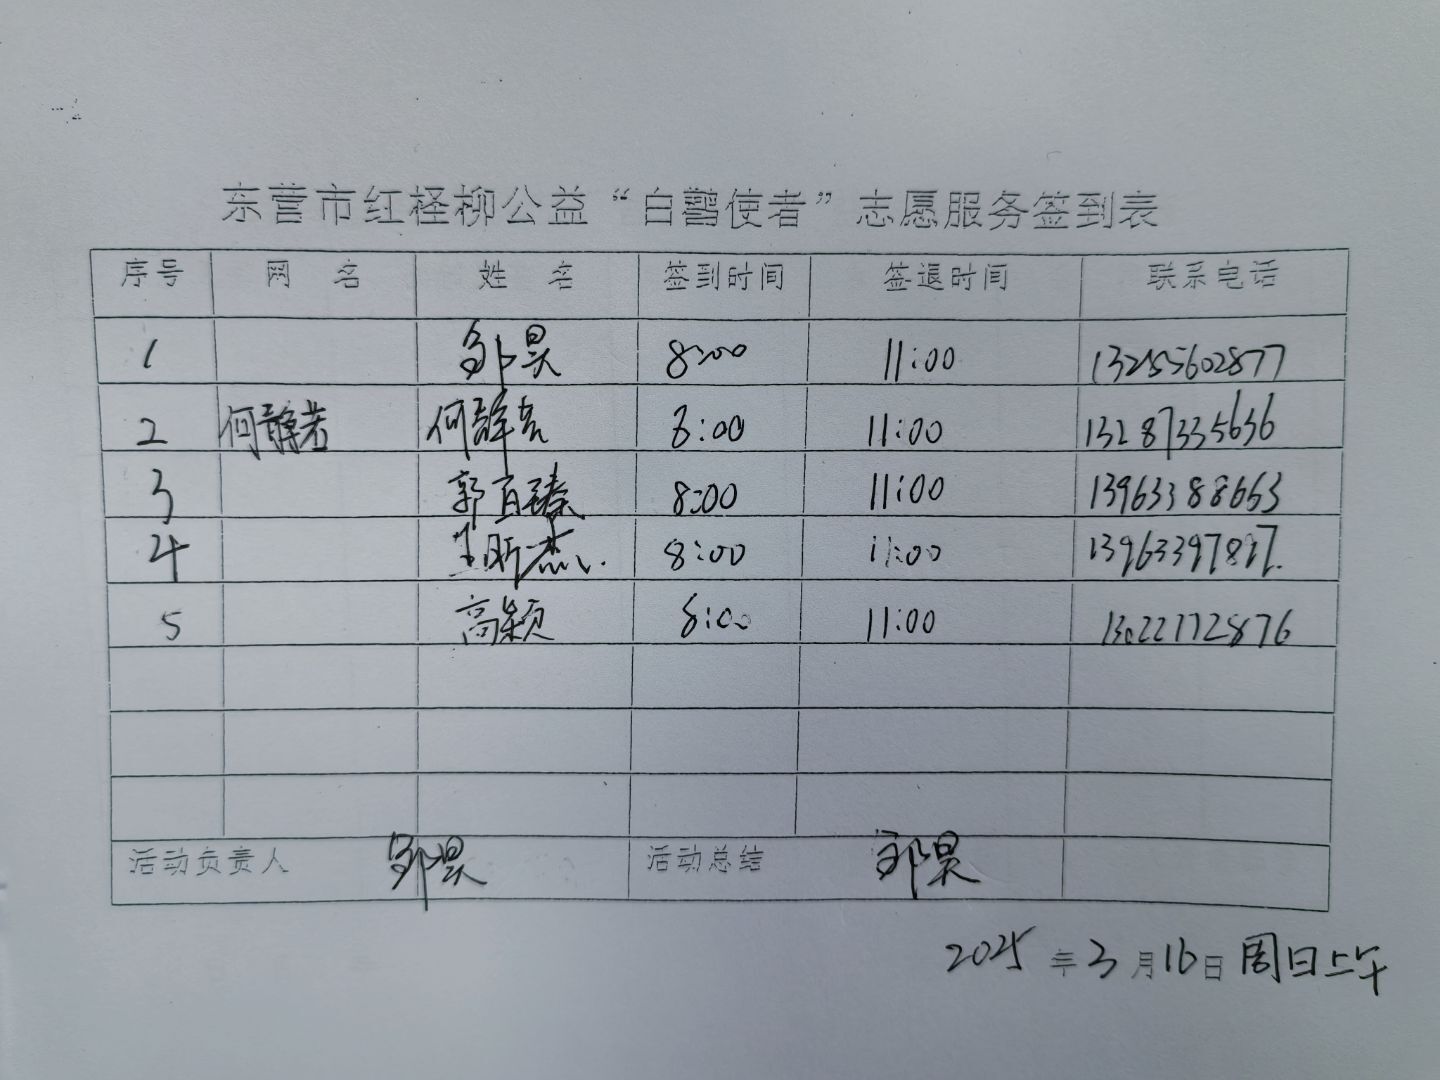 东营市红柽柳公益“白鹳使者”志愿服务签到表
序号 网 名 姓 名 签到时间 签退时间 联系电话
1 邹昊 8:00 11:00 13255602877
2 何静若 何静若 8:00 11:00 13287335636
3 郭百臻 8:00 11:00 13963388663
4 王昕杰 8:00 11:00 13963397817
5 高颖 8:00 11:00 13022172876
活动负责人 邹昊 活动总结 邹昊
2025年3月16日周日上午